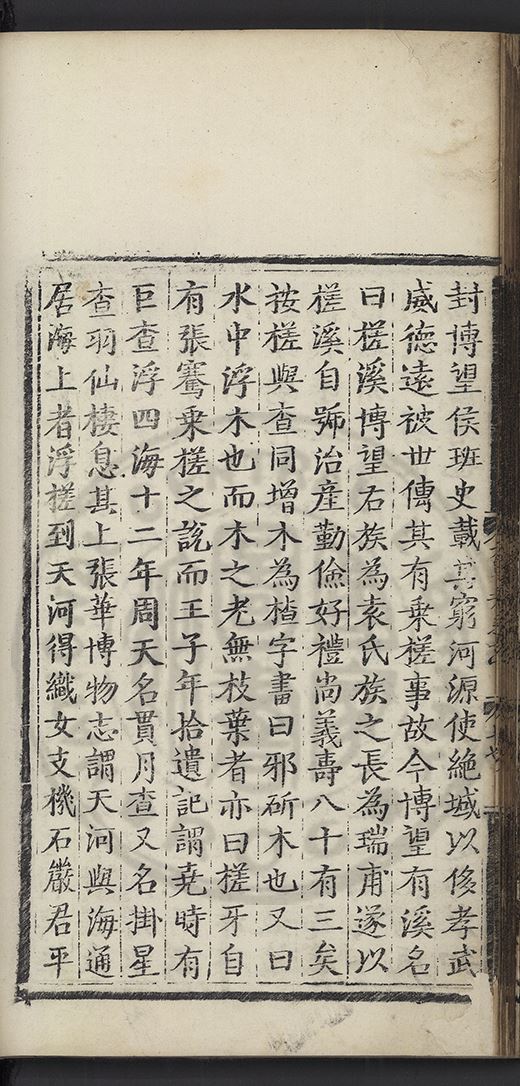 封博望侯班史載其窮河源使絶域以侈孝武
威德遠被世傳其有乗槎事故今博望有溪名
曰槎溪博望右族為袁氏族之長為瑞甫遂以
槎溪自號治産勤儉好禮尚義壽八十有三矣
按槎與查同增木為楂字書曰邪斫木也又曰
水中浮木也而木之老無枝葉者亦曰槎牙自
有張騫乗槎之說而王子年拾遺記謂堯時有
巨查浮四海十二年周天名貫月查又名掛星
查羽仙棲息其上張華博物志謂天河與海通
居海上者浮槎到天河得織女支機石嚴君平